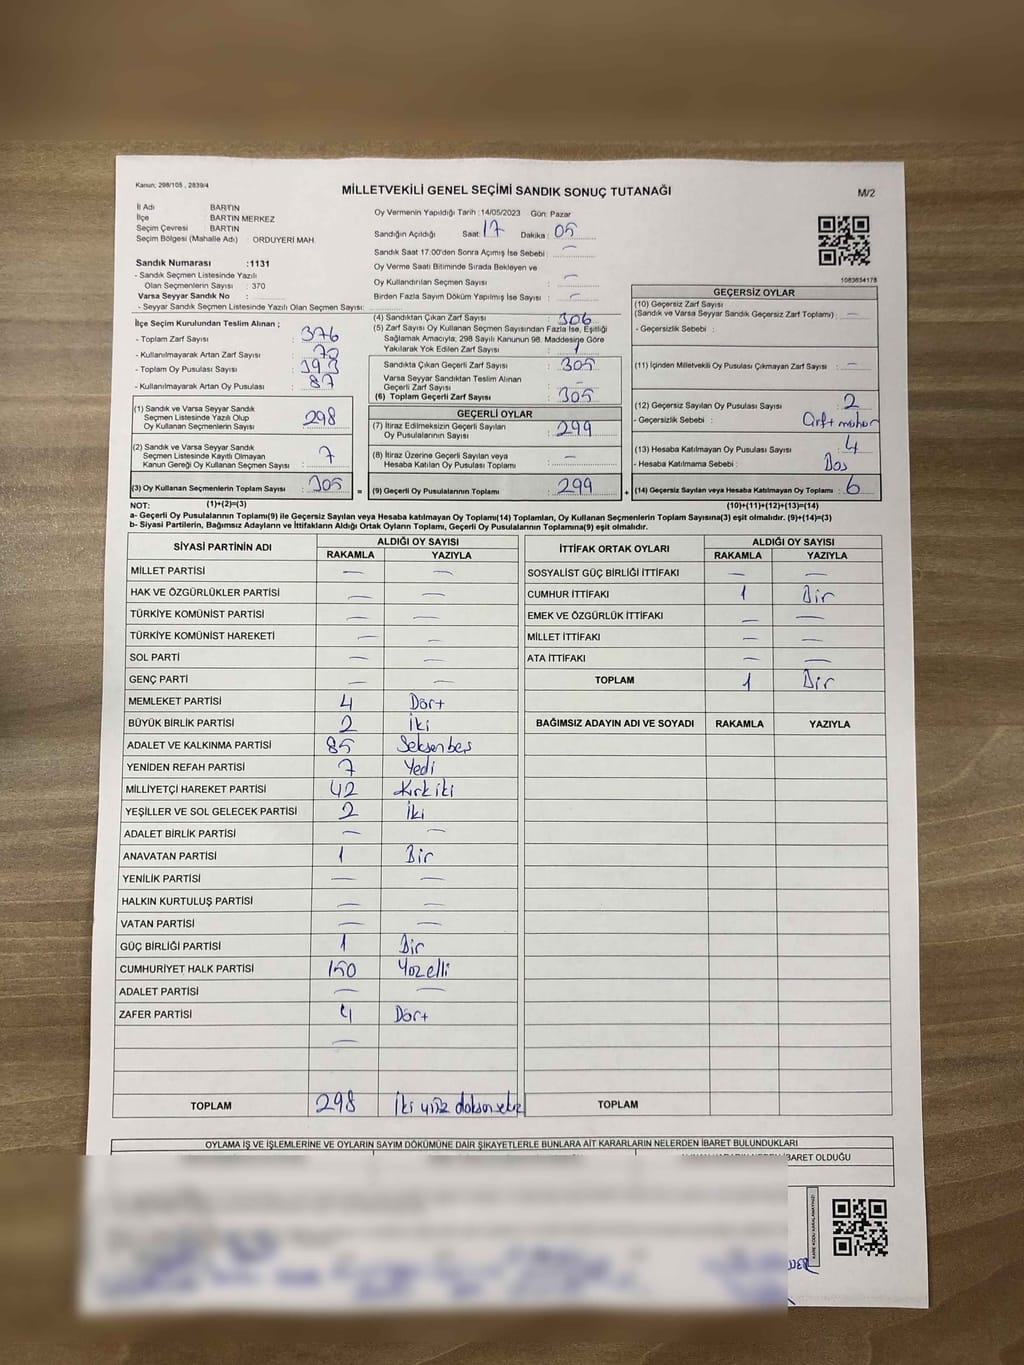 Kanun; 298/105 , 2839/4
MİLLETVEKİLİ GENEL SEÇİMİ SANDIK SONUÇ TUTANAĞI
M/2
İl Adı BARTIN
İlçe BARTIN MERKEZ
Seçim Çevresi BARTIN
Seçim Bölgesi (Mahalle Adı) : ORDUYERİ MAH.
Sandık Numarası :1131
- Sandık Seçmen Listesinde Yazılı
Olan Seçmenlerin Sayısı : 370
Varsa Seyyar Sandık No :
- Seyyar Sandık Listesinde Yazılı Olan Seçmen Sayısı:
İlçe Seçim Kurulundan Teslim Alınan ;
- Toplam Zarf Sayısı : 376
- Kullanılmayarak Artan Zarf Sayısı :
- Toplam Oy Pusulası Sayısı :
- Kullanılmayarak Artan Oy Pusulası : 87
(1) Sandık ve Varsa Seyyar Sandık
Seçmen Listesinde Yazılı Olup
Oy Kullanan Seçmenlerin Sayısı : 298
(2) Sandık ve Varsa Seyyar Sandık
Seçmen Listesinde Kayıtlı Olmayan
Kanun Gereği Oy Kullanan Seçmen Sayısı : 7
(3) Oy Kullanan Seçmenlerin Toplam Sayısı : 305
Oy Vermenin Yapıldığı Tarih :14/05/2023 Gün: Pazar
Sandığın Açıldığı Saat: 17 Dakika : 05
Sandık Saat 17:00'den Sonra Açılmış İse Sebebi : —
Oy Verme Saati Bitiminde Sırada Bekleyen ve
Oy Kullandırılan Seçmen Sayısı : —
Birden Fazla Sayım Döküm Yapılmış İse Sayısı : —
(4) Sandıktan Çıkan Zarf Sayısı : 306
(5) Zarf Sayısı Oy Kullanan Seçmen Sayısından Fazla İse, Eşitliği
Sağlamak Amacıyla; 298 Sayılı Kanunun 98. Maddesine Göre
Yakılarak Yok Edilen Zarf Sayısı : 1
Sandıkta Çıkan Geçerli Zarf Sayısı : 305
Varsa Seyyar Sandıktan Teslim Alınan
Geçerli Zarf Sayısı : —
(6) Toplam Geçerli Zarf Sayısı : 305
GEÇERLİ OYLAR
(7) İtiraz Edilmeksizin Geçerli Sayılan
Oy Pusulalarının Sayısı : 299
(8) İtiraz Üzerine Geçerli Sayılan veya
Hesaba Katılan Oy Pusulası Toplamı : —
= (9) Geçerli Oy Pusulalarının Toplamı : 299 +
1083634178
GEÇERSİZ OYLAR
(10) Geçersiz Zarf Sayısı
(Sandık ve Varsa Seyyar Sandık Geçersiz Zarf Toplamı) : —
- Geçersizlik Sebebi :
(11) İçinden Milletvekili Oy Pusulası Çıkmayan Zarf Sayısı : —
(12) Geçersiz Sayılan Oy Pusulası Sayısı : 2
- Geçersizlik Sebebi :
(13) Hesaba Katılmayan Oy Pusulası Sayısı : 4
- Hesaba Katılmama Sebebi : Boş
(14) Geçersiz Sayılan veya Hesaba Katılmayan Oy Toplamı : 6
NOT: (1)+(2)=(3) (10)+(11)+(12)+(13)=(14)
a- Geçerli Oy Pusulalarının Toplamı(9) ile Geçersiz Sayılan veya Hesaba Katılmayan Oy Toplamı(14) Toplamları, Oy Kullanan Seçmenlerin Toplam Sayısına(3) eşit olmalıdır. (9)+(14)=(3)
b- Siyasi Partilerin, Bağımsız Adayların ve İttifakların Aldığı Ortak Oyların Toplamı, Geçerli Oy Pusulalarının Toplamına(9) eşit olmalıdır.
SİYASİ PARTİNİN ADI ALDIĞI OY SAYISI
RAKAMLA YAZIYLA
MİLLET PARTİSİ — —
HAK VE ÖZGÜRLÜKLER PARTİSİ — —
TÜRKİYE KOMÜNİST PARTİSİ — —
TÜRKİYE KOMÜNİST HAREKETİ — —
SOL PARTİ — —
GENÇ PARTİ — —
MEMLEKET PARTİSİ 4 Dört
BÜYÜK BİRLİK PARTİSİ 2 İki
ADALET VE KALKINMA PARTİSİ 85 Seksenbeş
YENİDEN REFAH PARTİSİ 7 Yedi
MİLLİYETÇİ HAREKET PARTİSİ 42 Kırk iki
YEŞİLLER VE SOL GELECEK PARTİSİ 2 İki
ADALET BİRLİK PARTİSİ — —
ANAVATAN PARTİSİ 1 Bir
YENİLİK PARTİSİ — —
HALKIN KURTULUŞ PARTİSİ — —
VATAN PARTİSİ — —
GÜÇ BİRLİĞİ PARTİSİ 1 Bir
CUMHURİYET HALK PARTİSİ 150 Yüzelli
ADALET PARTİSİ — —
ZAFER PARTİSİ 4 Dört
—
TOPLAM 298 İki yüz doksansekiz
İTTİFAK ORTAK OYLARI ALDIĞI OY SAYISI
RAKAMLA YAZIYLA
SOSYALİST GÜÇ BİRLİĞİ İTTİFAKI — —
CUMHUR İTTİFAKI 1 Bir
EMEK VE ÖZGÜRLÜK İTTİFAKI — —
MİLLET İTTİFAKI — —
ATA İTTİFAKI — —
TOPLAM 1 Bir
BAĞIMSIZ ADAYIN ADI VE SOYADI RAKAMLA YAZIYLA
TOPLAM
OYLAMA İŞ VE İŞLEMLERİNE VE OYLARIN SAYIM DÖKÜMÜNE DAİR ŞİKAYETLERLE BUNLARA AİT KARARLARIN NELERDEN İBARET BULUNDUKLARI
İBARET OLDUĞU